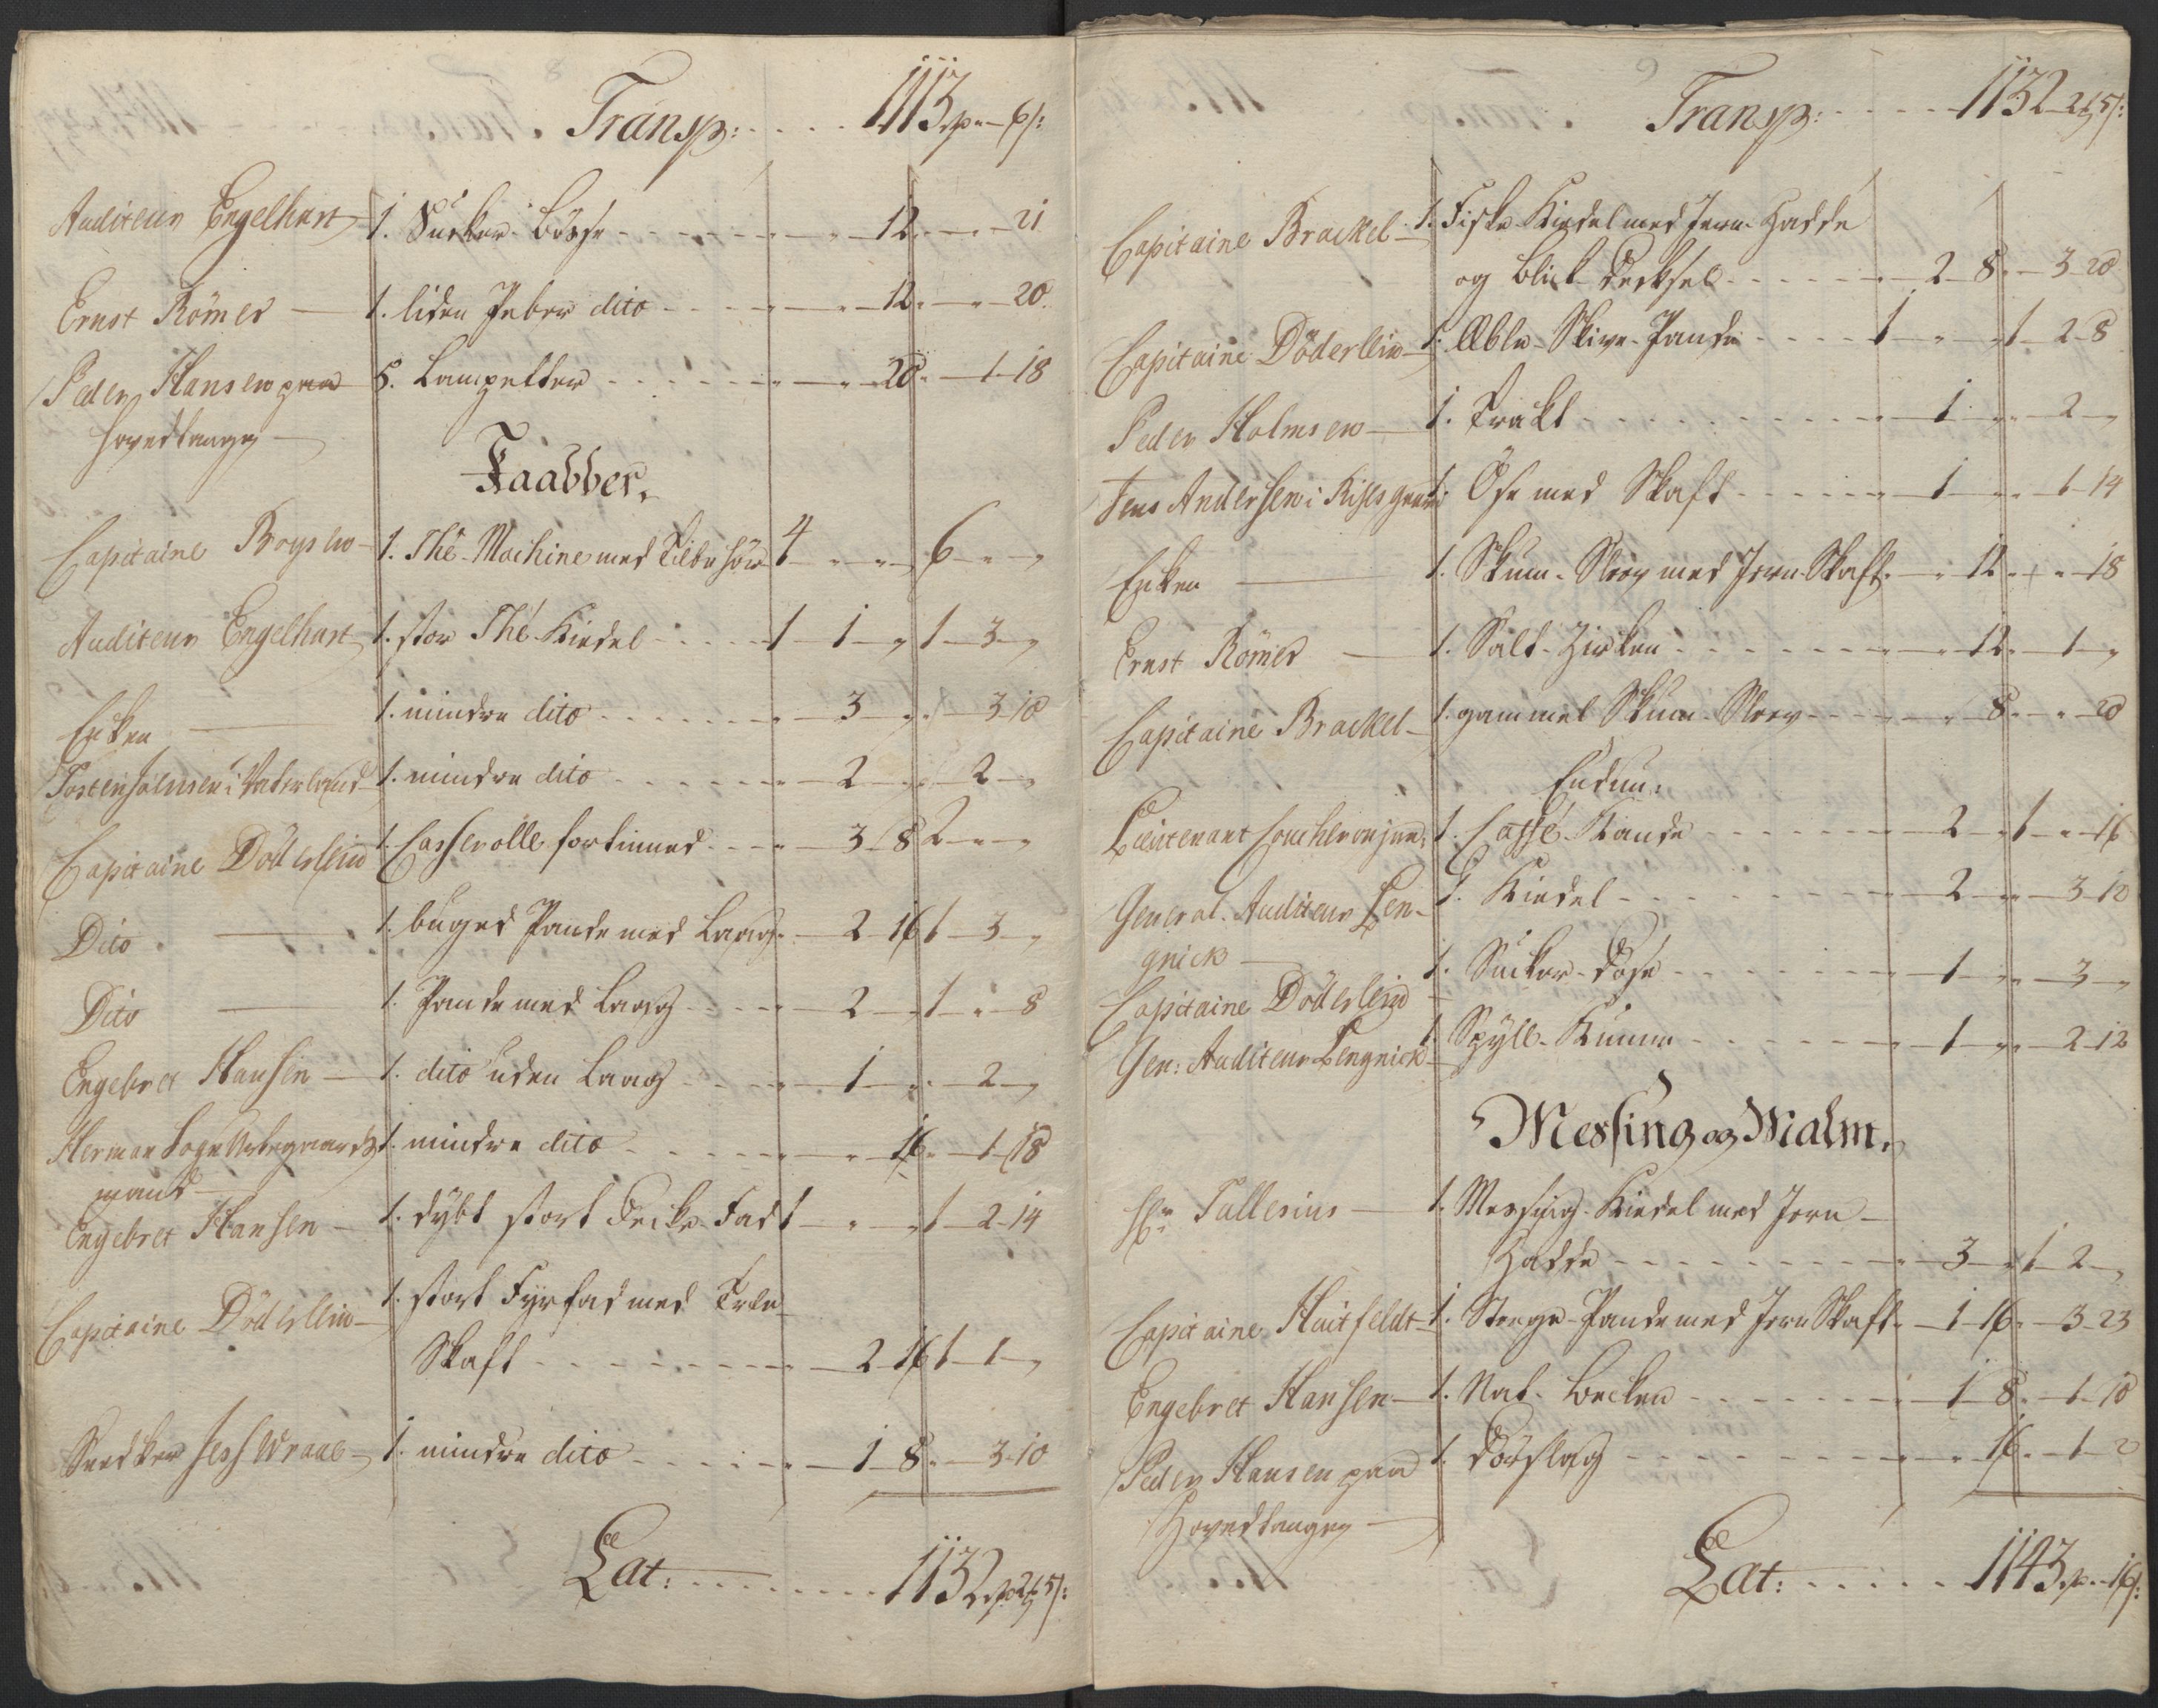 Transp: . . . . 1113 sp - " - 6 s:
Auditeur Engelhart 1. Sucker-Bösse - - - " - " - 12 " - " - 21
Ernst Römer 1. liden Peber dito - - - " - " - 12 " - " - 20
Peder Hansen paa 5. Lampetter - - - " - " - 20 " - 1 - 18
Hovedtangen
Kaabber.
Capitaine Boysen 1. The-Machine med Tilbehör 4 - " - " 6 - " - "
Auditeur Engelhart 1. stor The-Kiedel - - - 1 - 1 - " 1 - 3 - "
Enken 1. mindre dito - - - " - 3 - " " - 3 - 10
Tosten Johnsen i Vaterland 1. mindre dito - - - " - 2 - " " - 2 - "
Capitaine Döderlein 1. Casserolle fortinned - - " - 3 - 8 2 - " - "
Dito 1. buged Pande med Laag - " - 2 - 16 1 - 3 - "
Dito 1. Pande med Laag - - - " - 2 - " 1 - " - 8
Engebret Hansen 1. dito uden Laag - - - " - 1 - " " - 2 - "
Herman 1. mindre dito - - - " - " - 16 " - 1 - 18
mand
Engebret Hansen 1. dybt stort Decke-Fad 1 - " - " 1 - 2 - 14
Capitaine Döderlein 1. stort Fyrfad med Træ
Skaft - - - " - 2 - 16 1 - 1 - "
Snedker Jess Wraae 1. mindre dito - - - " - 1 - 8 " - 3 - 10
Lat: . . . . 1132 sp 2 5 s:
Transp: . . . . 1132 - 2 5 s:
Capitaine Brackel 1. Fiske-Kiedel med Jern-Hadde
og Blick-Decksel - - - " - 2 - 8 " - 3 - 20
Capitaine Döderlein 1. Æble-Skive-Pande - - - 1 - " - " 1 - 2 - 8
Peder Holmsen 1. Trakt - - - " - 1 - " " - 2 - "
Jens Andersen i Risesgaard 1. Öse med Skaft - - - " - 1 - " " - 1 - 14
Enken 1. Skum-Sleev med Jern-Skaft " - " - 12 " - " - 18
Ernst Römer 1. Salt-Zirken - - - " - " - 12 " - 1 - "
Capitaine Brackel 1. gammel Skum-Sleev - - - " - " - 8 " - " - 20
Endnu:
Lieutenant Coucheron jun: 1. Caffe-Kande - - - " - 2 - " 1 - " - 16
General-Auditeur Len- 1. Kiedel - - - " - 2 - " " - 3 - 10
gnick
Capitaine Döderlein 1. Sucker-Dose - - - " - 1 - " " - 3 - "
Gen: Auditeur Lengnick 1. Spyll-Kumme - - - " - 1 - " " - 2 - 12
Messing og Malm.
Hr: Tullesius 1. Messing-Kiedel med Jern-
Hadde - - - " - 3 - " 1 - 2 - "
Capitaine Huitfeldt 1. Stege-Pande med Jern Skaft " - 1 - 16 " - 3 - 23
Engebret Hansen 1. Nat-Becken - - - " - 1 - 8 " - 1 - 10
Peder Hansen paa 1. Dörslag - - - " - " - 16 " - 1 - 2
Hovedtangen
Lat: . . . . 1143 sp - " - 16 s: